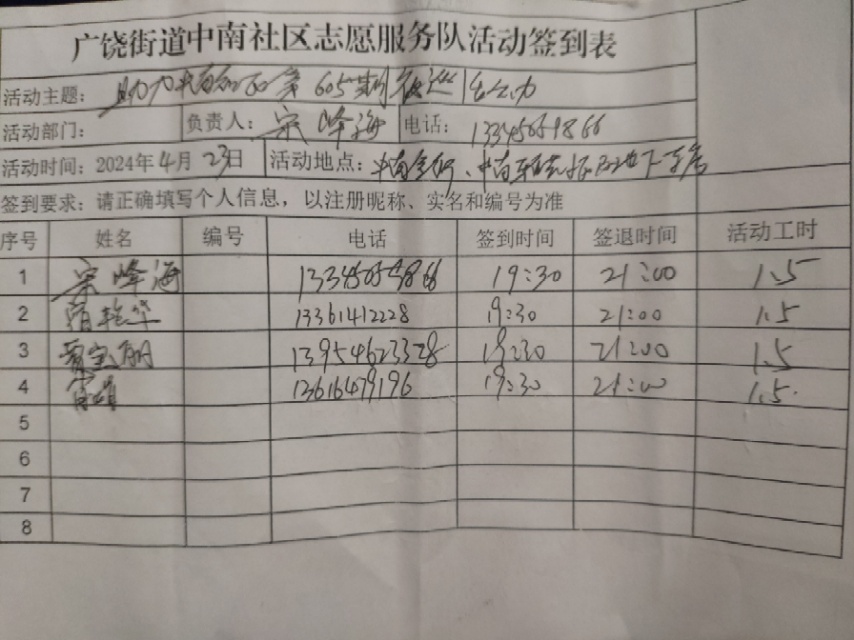 广饶街道中南社区志愿服务队活动签到表
活动主题: 助力 第605期夜巡
活动部门: 负责人: 宋峰海 电话:
活动时间: 2024年4月23日 活动地点: 地下车库
签到要求: 请正确填写个人信息，以注册昵称、实名和编号为准
序号 姓名 编号 电话 签到时间 签退时间 活动工时
1 宋峰海 19:30 21:00 1.5
2 13361412228 19:30 21:00 1.5
3 黄宝丽 13954623328 19:30 21:00 1.5
4 13616479196 19:30 21:00 1.5.
5
6
7
8